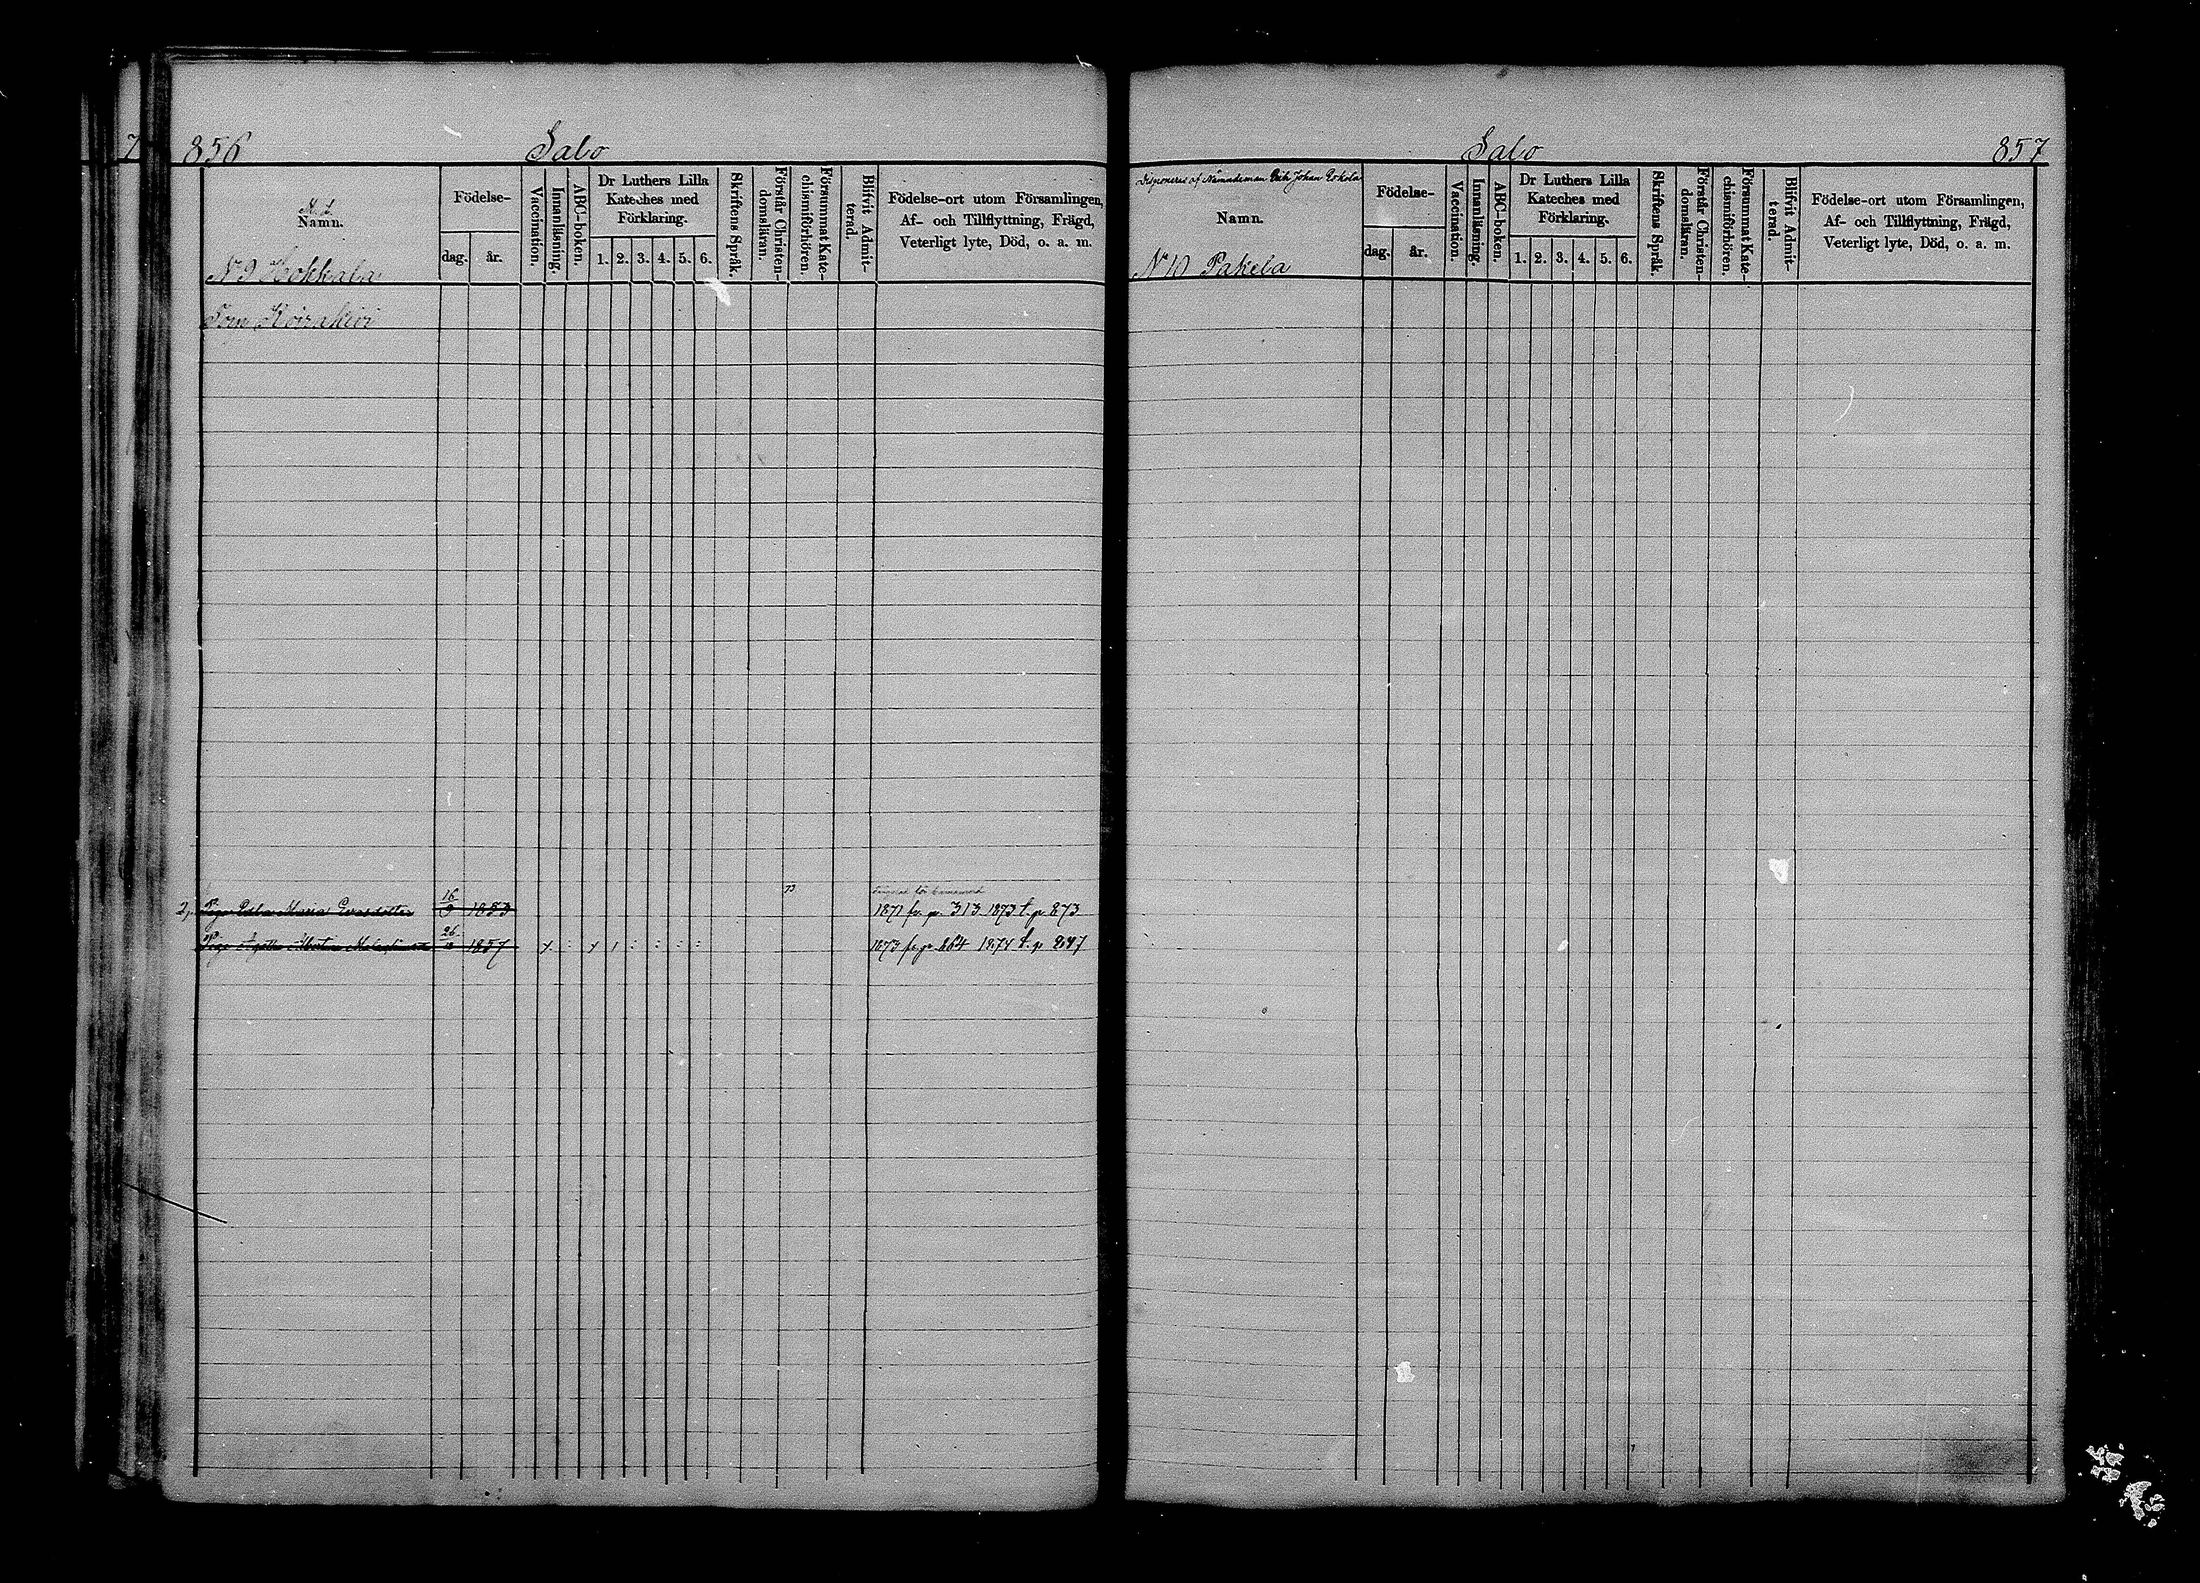 7
856
Salo
Namn.
Födelse-
dag.
år.
Vaccination.
Innanläsning.
ABC-boken.
Dr Luthers Lilla
Kateches med
Förklaring.
1. 2. 3. 4. 5. 6.
Skriftens Språk.
Förstår Christen-
domsläran.
Försummat Kate-
chismiförhören.
Blifvit Admit-
terad.
Födelse-ort utom Församlingen,
Af- och Tillflyttning, Frägd,
Veterligt lyte, Död, o. a. m.
N 9 Hokkala
Tom Koirakivi
73
2. Piga Edla Maria Evasdotter 16/9 1853 1871 fr. p. 313 1873 t. p. 873
Piga Agatha Albertina 26 1857 1873 fr. p. 864 1874 t. p. 847
Salo
857
Disponeras af Nämndeman Erik Johan Eskola
Namn.
Födelse-
dag.
år.
Vaccination.
Innanläsning.
ABC-boken.
Dr Luthers Lilla
Kateches med
Förklaring.
1. 2. 3. 4. 5. 6.
Skriftens Språk.
Förstår Christen-
domsläran.
Försummat Kate-
chismiförhören.
Blifvit Admit-
terad.
Födelse-ort utom Församlingen,
Af- och Tillflyttning, Frägd,
Veterligt lyte, Död, o. a. m.
N 10 Pakela